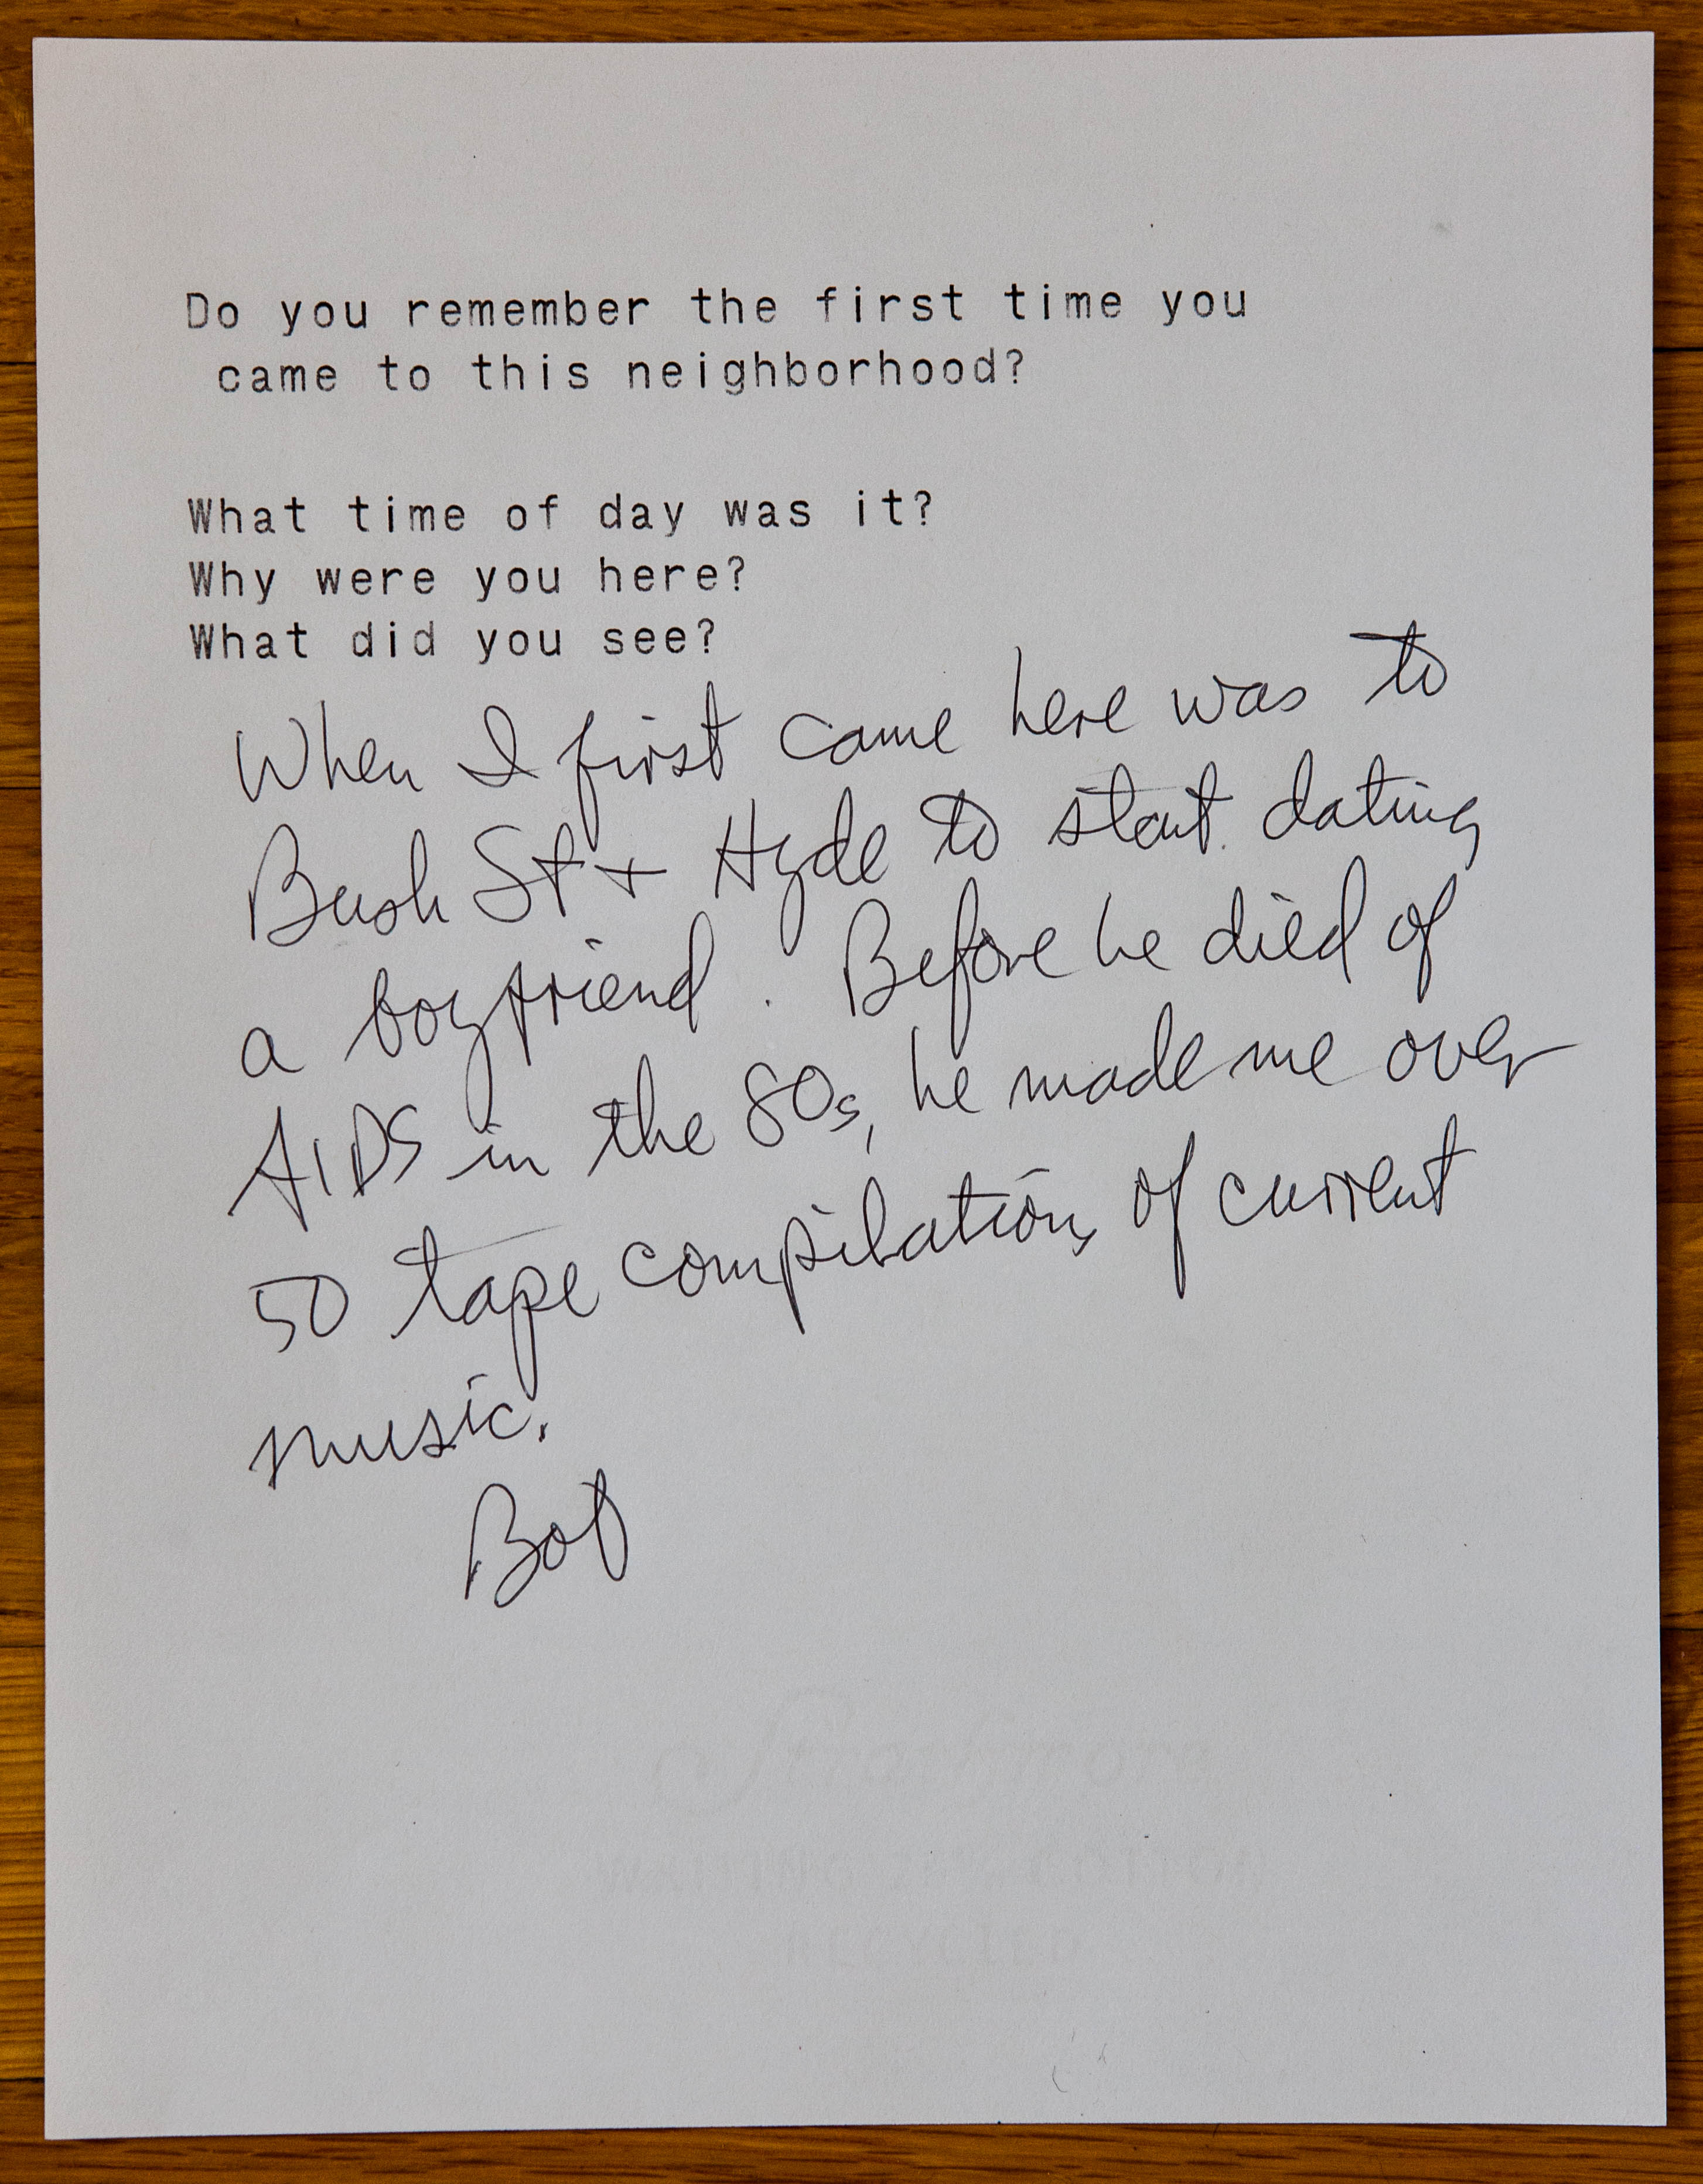 Do you remember the first time you
came to this neighborhood?
What time of day was it?
Why were you here?
What did you see?
When I first came here was to
Bush St + Hyde to start dating
a boyfriend. Before he died of
AIDS in the 80s, he made me over
50 tape compilations of current
music.
Bob
RECYCLED